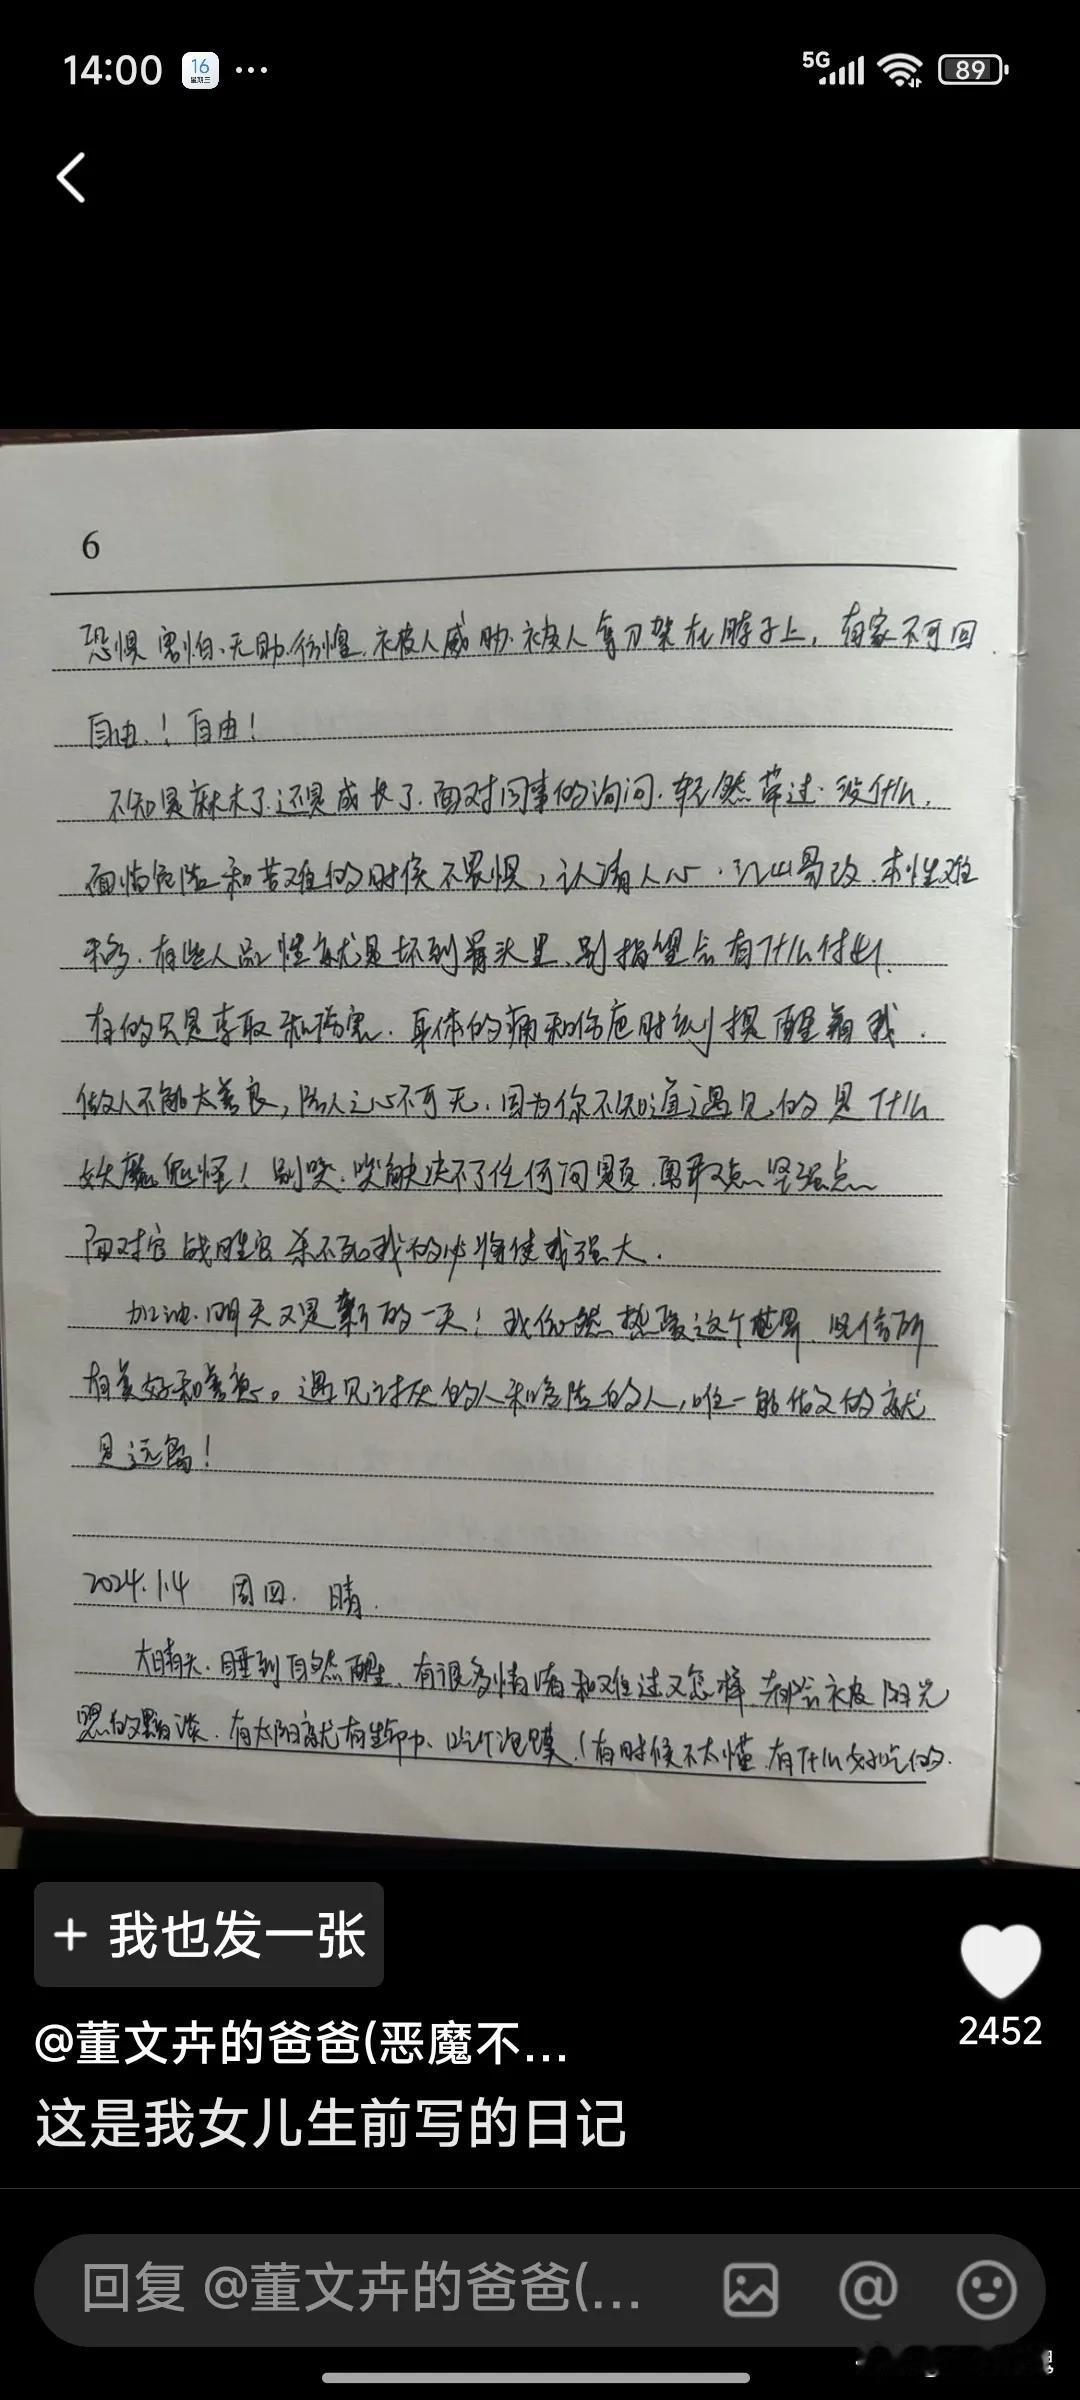 14:00 16 星期三 ... 5G 89
6
恐惧、害怕、无助、彷惶、被人威胁、被人拿刀架在脖子上，有家不可回
自由！自由！
不知是麻木了还是成长了，面对同事的询问，轻然带过，没什么，
面临危险和苦难的时候不畏惧，认清人心，江山易改，本性难
移，有些人品性就是坏到骨头里，别指望会有什么付出，
有的只是索取和伤害，身体的痛和伤疤时刻提醒着我，
做人不能太善良，防人之心不可无，因为你不知道遇见的是什么
妖魔鬼怪！别哭，哭解决不了任何问题，勇敢点坚强点
面对它战胜它杀不死我的必将使我强大.
加油，明天又是新的一天！我依然热爱这个世界，坚信所
有美好和善意。遇见讨厌的人和危险的人，唯一能做的就
是远离！
2024.1.4 周四. 晴.
大晴天，睡到自然醒，有很多情绪和难过又怎样，都会被阳光
照的黯淡，有太阳就有生命力，吃个泡馍，（有时候不太懂，有什么好吃的.
+ 我也发一张
2452
@董文卉的爸爸(恶魔不...
这是我女儿生前写的日记
回复 @董文卉的爸爸(...